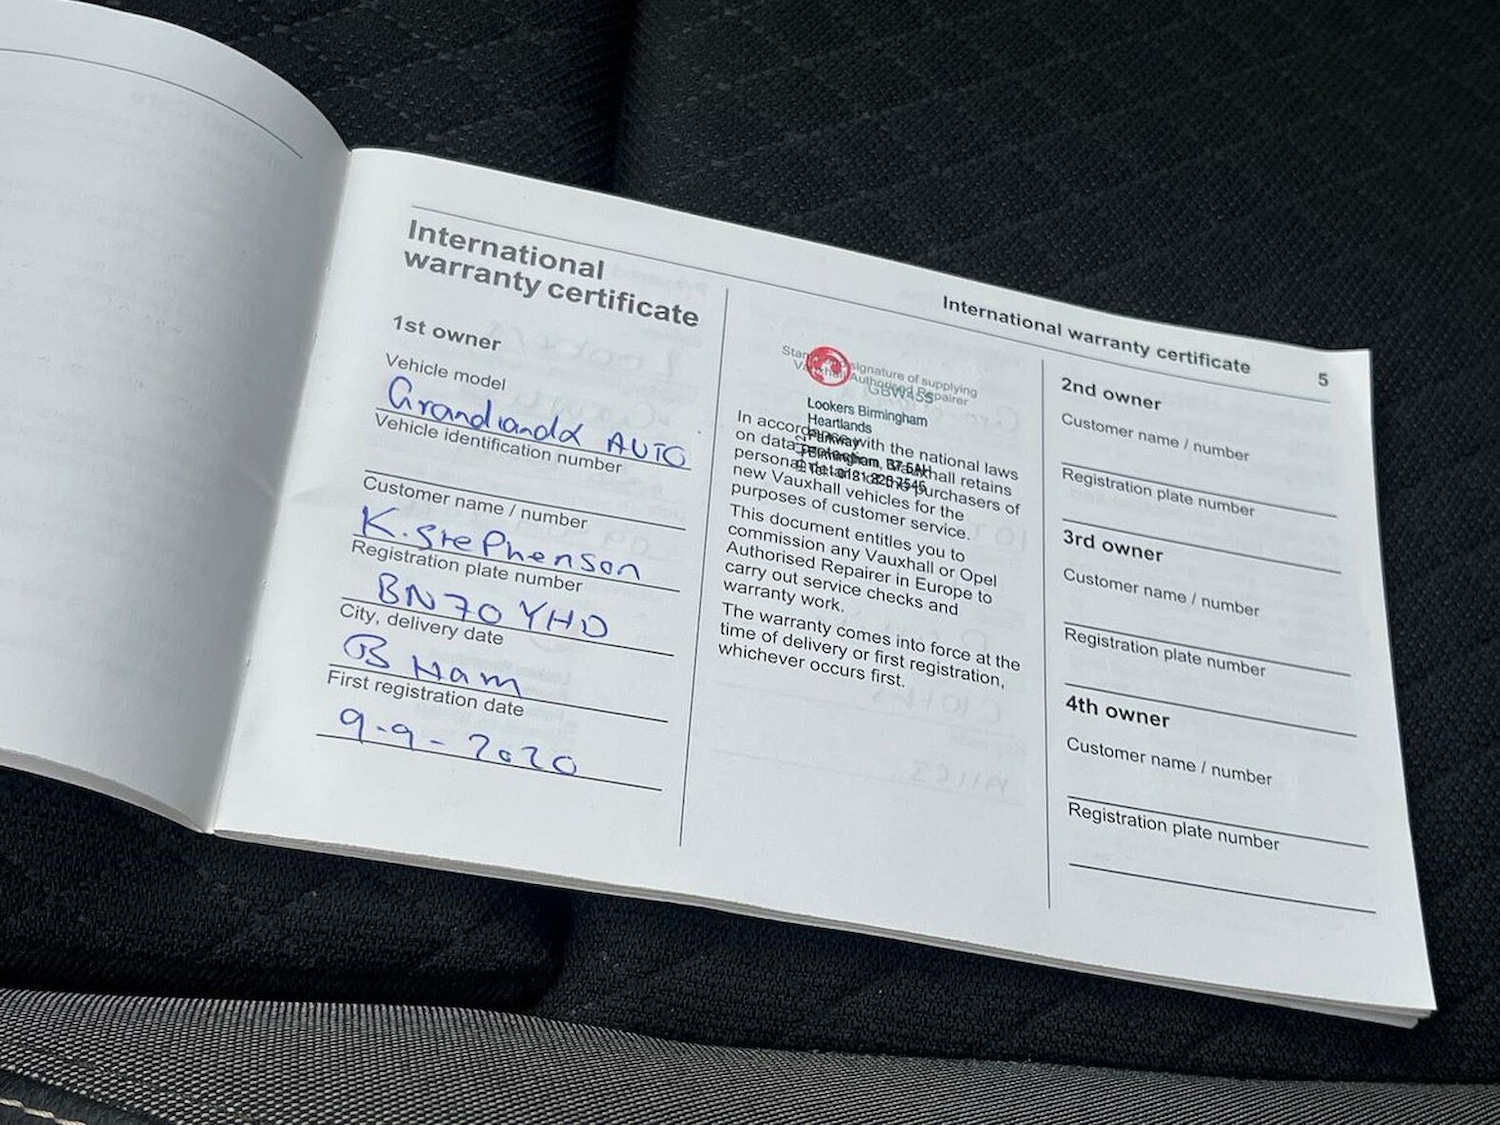 International
warranty certificate
1st owner
Vehicle model
Grandlandx AUTO
Vehicle identification number
Customer name / number
K. Stephenson
Registration plate number
BN70 YHD
City, delivery date
B Ham
First registration date
9-9-2020
International warranty certificate 5
signature of supplying
Authorised Repairer
GBW455
Lookers Birmingham
Heartlands
Parkway
Birmingham, B7 5AH
In accordance with the national laws
on data protection, Vauxhall retains
personal details of purchasers of
new Vauxhall vehicles for the
purposes of customer service.
This document entitles you to
commission any Vauxhall or Opel
Authorised Repairer in Europe to
carry out service checks and
warranty work.
The warranty comes into force at the
time of delivery or first registration,
whichever occurs first.
2nd owner
Customer name / number
Registration plate number
3rd owner
Customer name / number
Registration plate number
4th owner
Customer name / number
Registration plate number